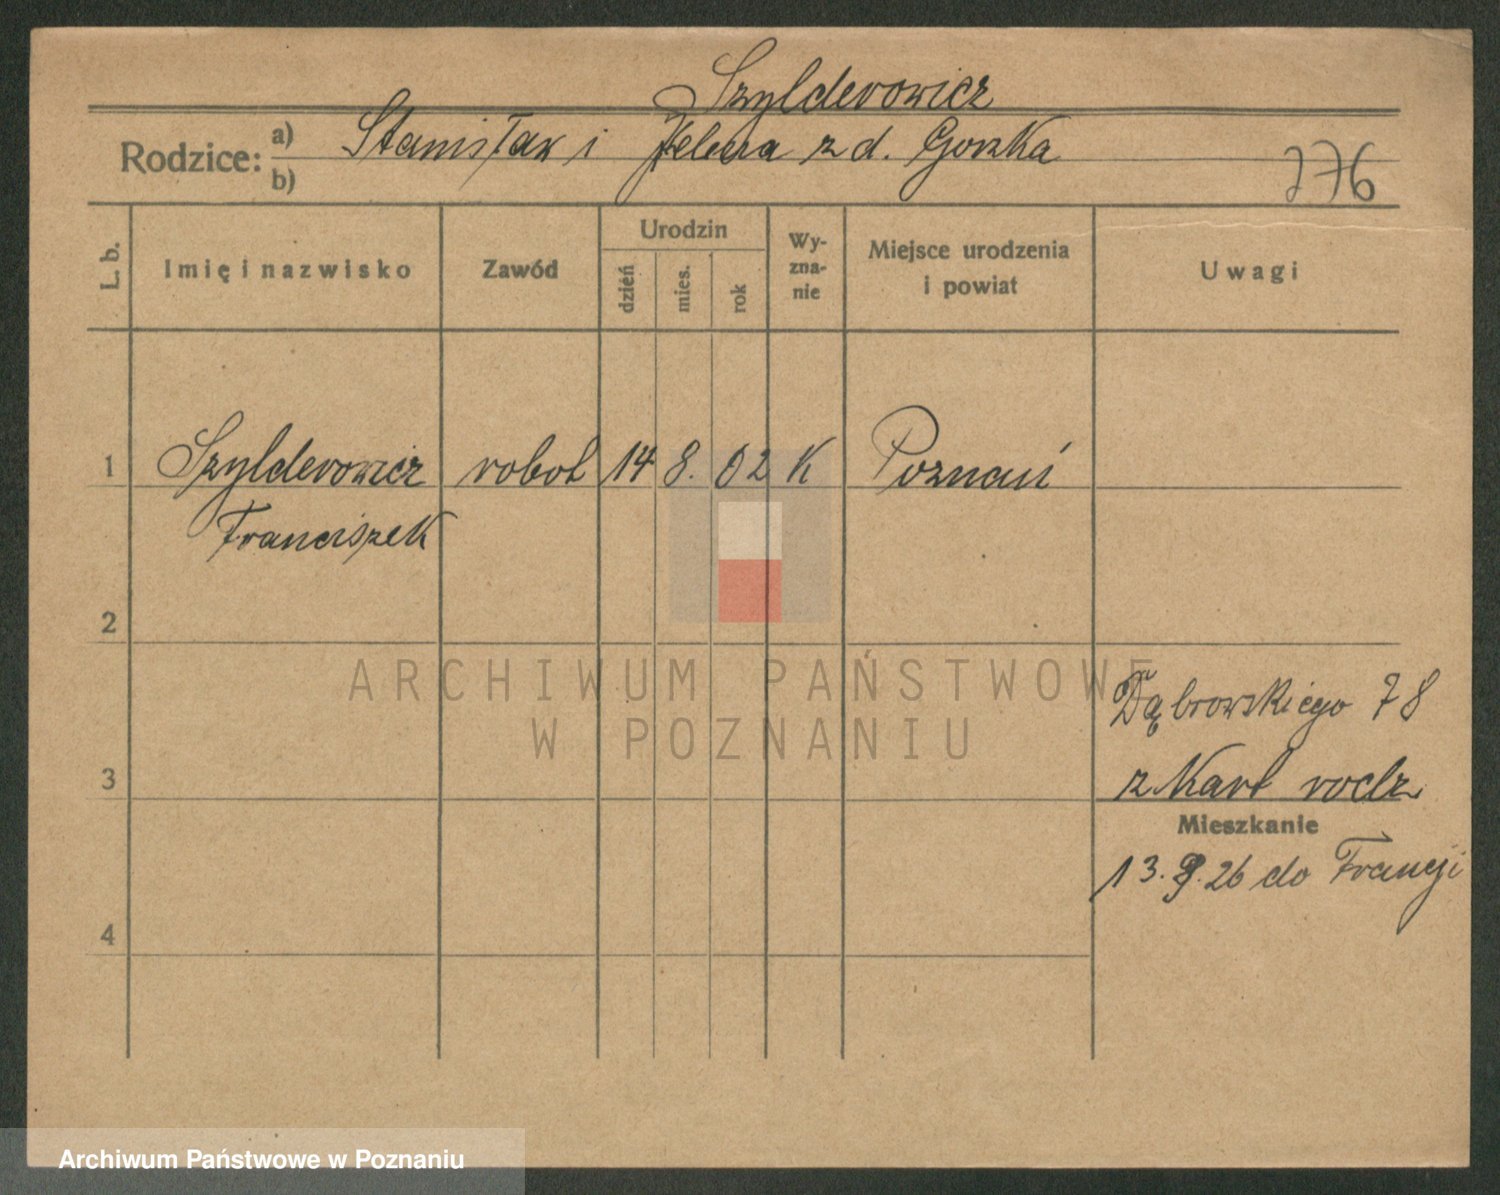 Szylderowicz
Rodzice: a) Stanisław i Helena z d. Gorzka
b)
276
L. b.
Imię i nazwisko
Zawód
Urodzin
dzień
mies.
rok
Wy-
zna-
nie
Miejsce urodzenia
i powiat
Uwagi
1 Szylderowicz robot 14 8. 02 K Poznań
Franciszek
2
ARCHIWUM PAŃSTWOWE
W POZNANIU
Dąbrowskiego 78
3 z Kart rodz.
Mieszkanie
13. 9. 26 do Francji
4
Archiwum Państwowe w Poznaniu